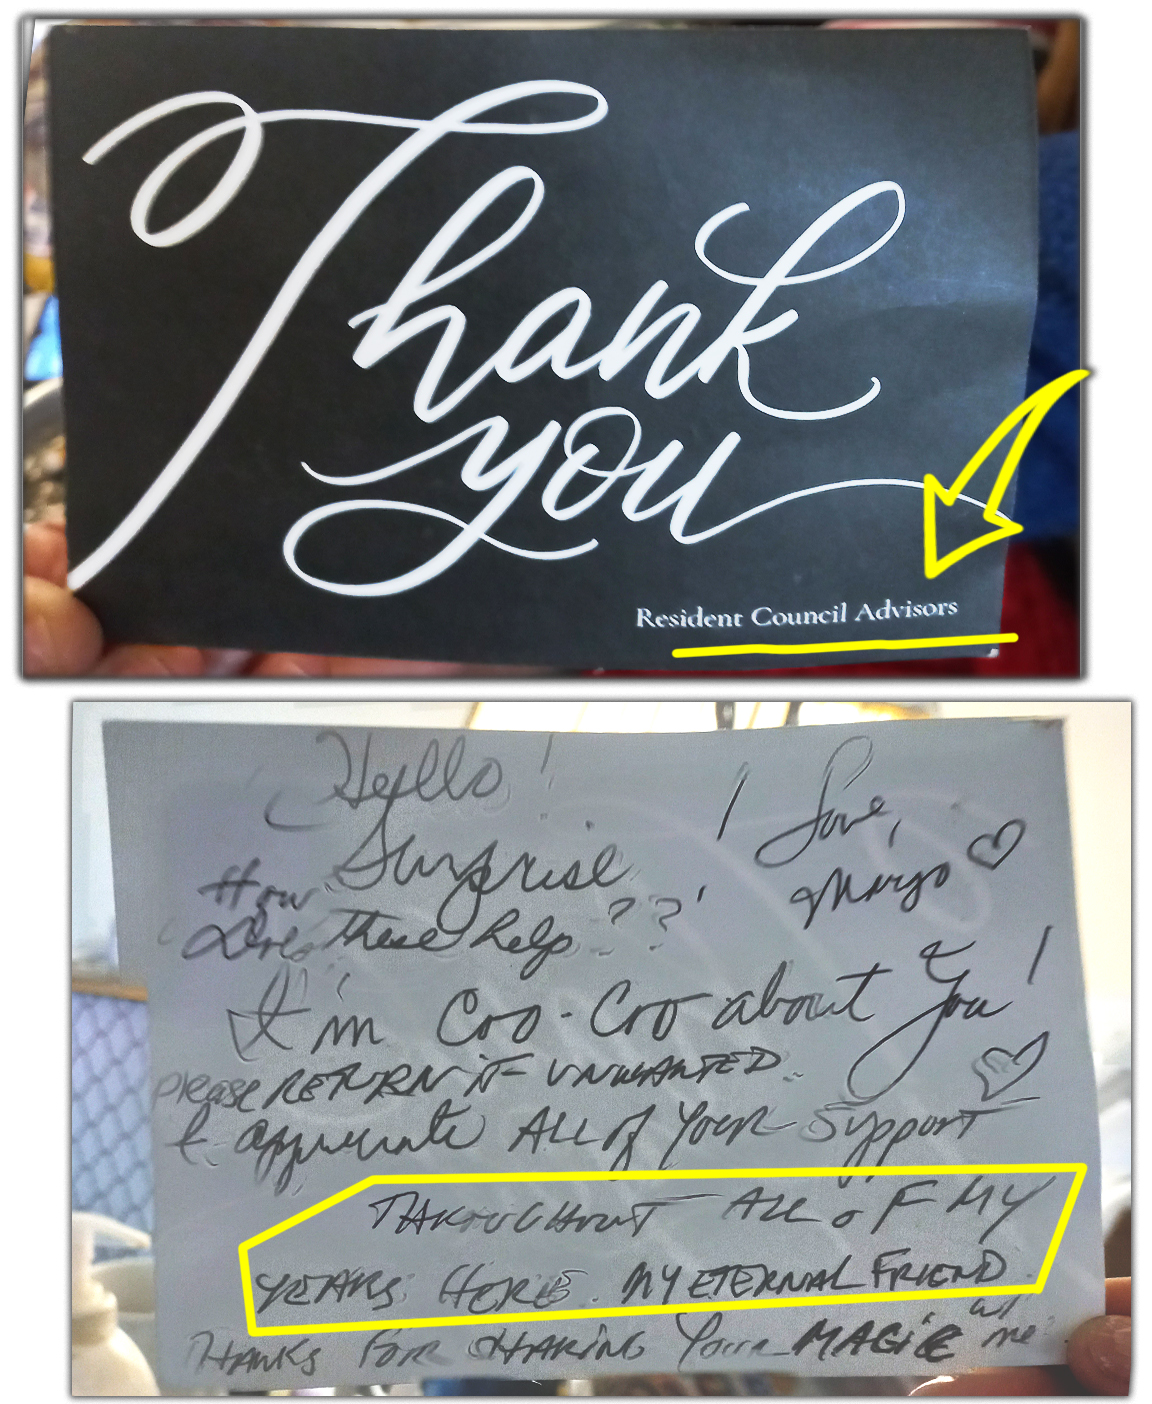 Thank
you
Resident Council Advisors
Hello!
Surprise!
Love,
Margo
How
Does these help??
I'm Coo-Coo about you!
please RETURN iF UNWANTED.
& appreciate ALL of Your Support
THROUGHOUT ALL OF MY
YEARS HERE. MY ETERNAL FRIEND.
THANKS FOR SHARING Your MAGIC w/ me